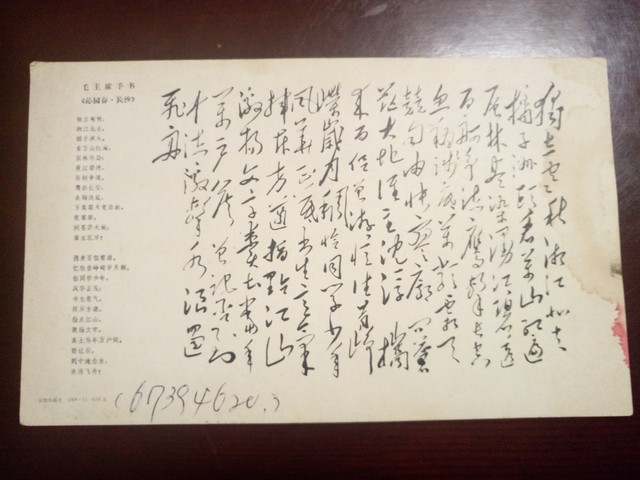 獨立寒秋湘江北去
橘子洲頭看萬山紅遍
層林盡染漫江碧透
百舸爭流鷹擊長空
魚翔淺底萬類霜天
競自由悵寥廓問蒼
茫大地誰主沈浮 攜
來百侶曾游憶往昔崢
嶸歲月稠恰同學少年
風華正茂書生意氣
揮斥方遒指點江山
激揚文字糞土當年
萬戶侯曾記否到
中流擊水浪遏
飛舟
毛主席手书
《沁园春·长沙》
独立寒秋,
湘江北去,
橘子洲头。
看万山红遍,
层林尽染;
漫江碧透,
百舸争流。
鹰击长空,
鱼翔浅底,
万类霜天竞自由。
怅寥廓,
问苍茫大地,
谁主沉浮?
携来百侣曾游,
忆往昔峥嵘岁月稠。
恰同学少年,
风华正茂;
书生意气,
挥斥方遒。
指点江山,
激扬文字,
粪土当年万户侯。
曾记否,
到中流击水,
浪遏飞舟?
(67394620.)